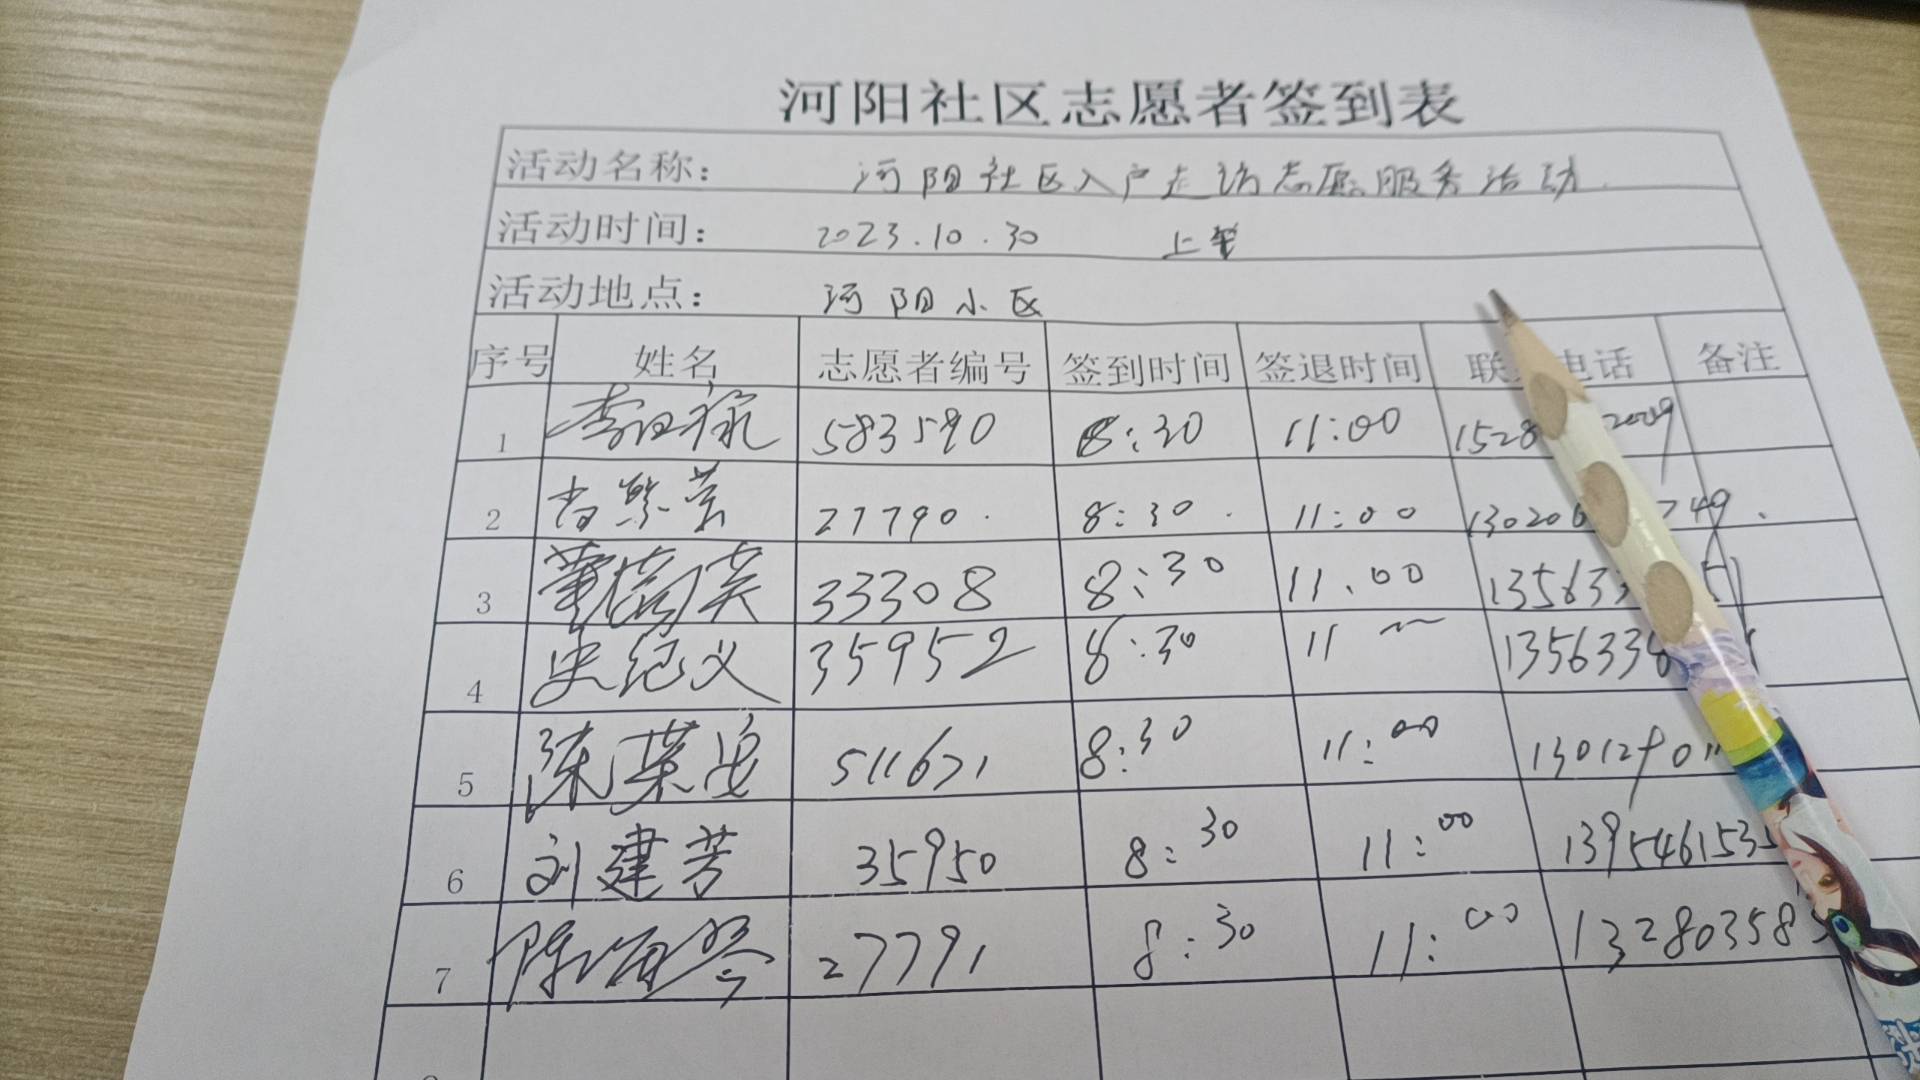 河阳社区志愿者签到表
活动名称： 河阳社区入户走访志愿服务活动
活动时间： 2023.10.30 上午
活动地点： 河阳小区
序号 姓名 志愿者编号 签到时间 签退时间 联 电话 备注
1 583590 8:30 11:00 1528 2009
2 27790 8:30 11:00 13020 749
3 董 英 33308 8:30 11:00 135633
4 史纪义 35952 8:30 11 135633
5 陈荣 511671 8:30 11:00 13012901
6 刘建芳 35950 8:30 11:00 1395461535
7 陈 琴 27791 8:30 11:00 132803585